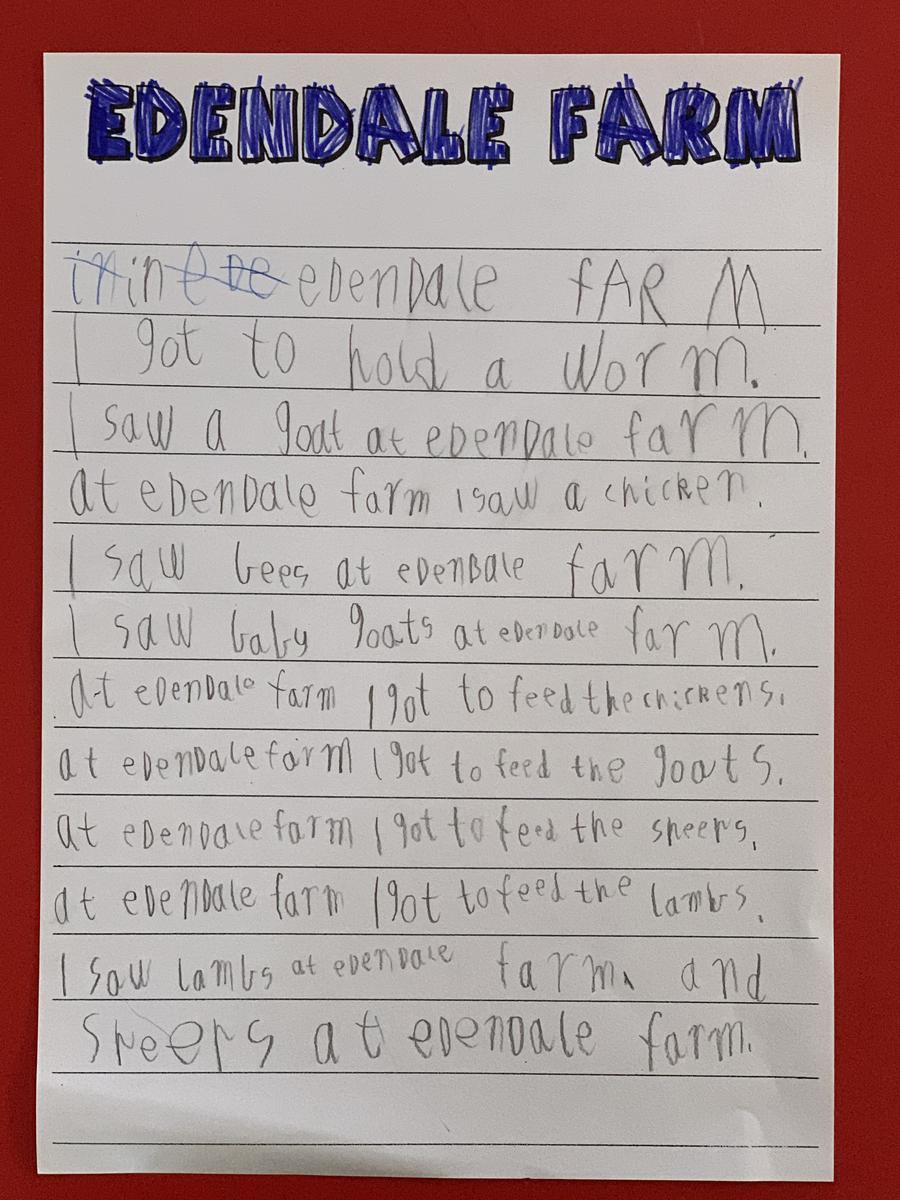 EDENDALE FARM
in in eDe eDenDale fAR M
I got to hold a Worm.
I saw a goat at eDenDale farm.
at eDenDale farm I saw a chicken.
I saw bees at eDenDale farm.
I saw baby goats at eDenDale farm.
at eDenDale farm I got to feed the chickens.
at eDenDale farm I got to feed the goats.
at eDenDale farm I got to feed the sheeps.
at eDenDale farm I got to feed the lambs.
I saw lambs at eDenDale farm. and
Sheeps at eDenDale farm.